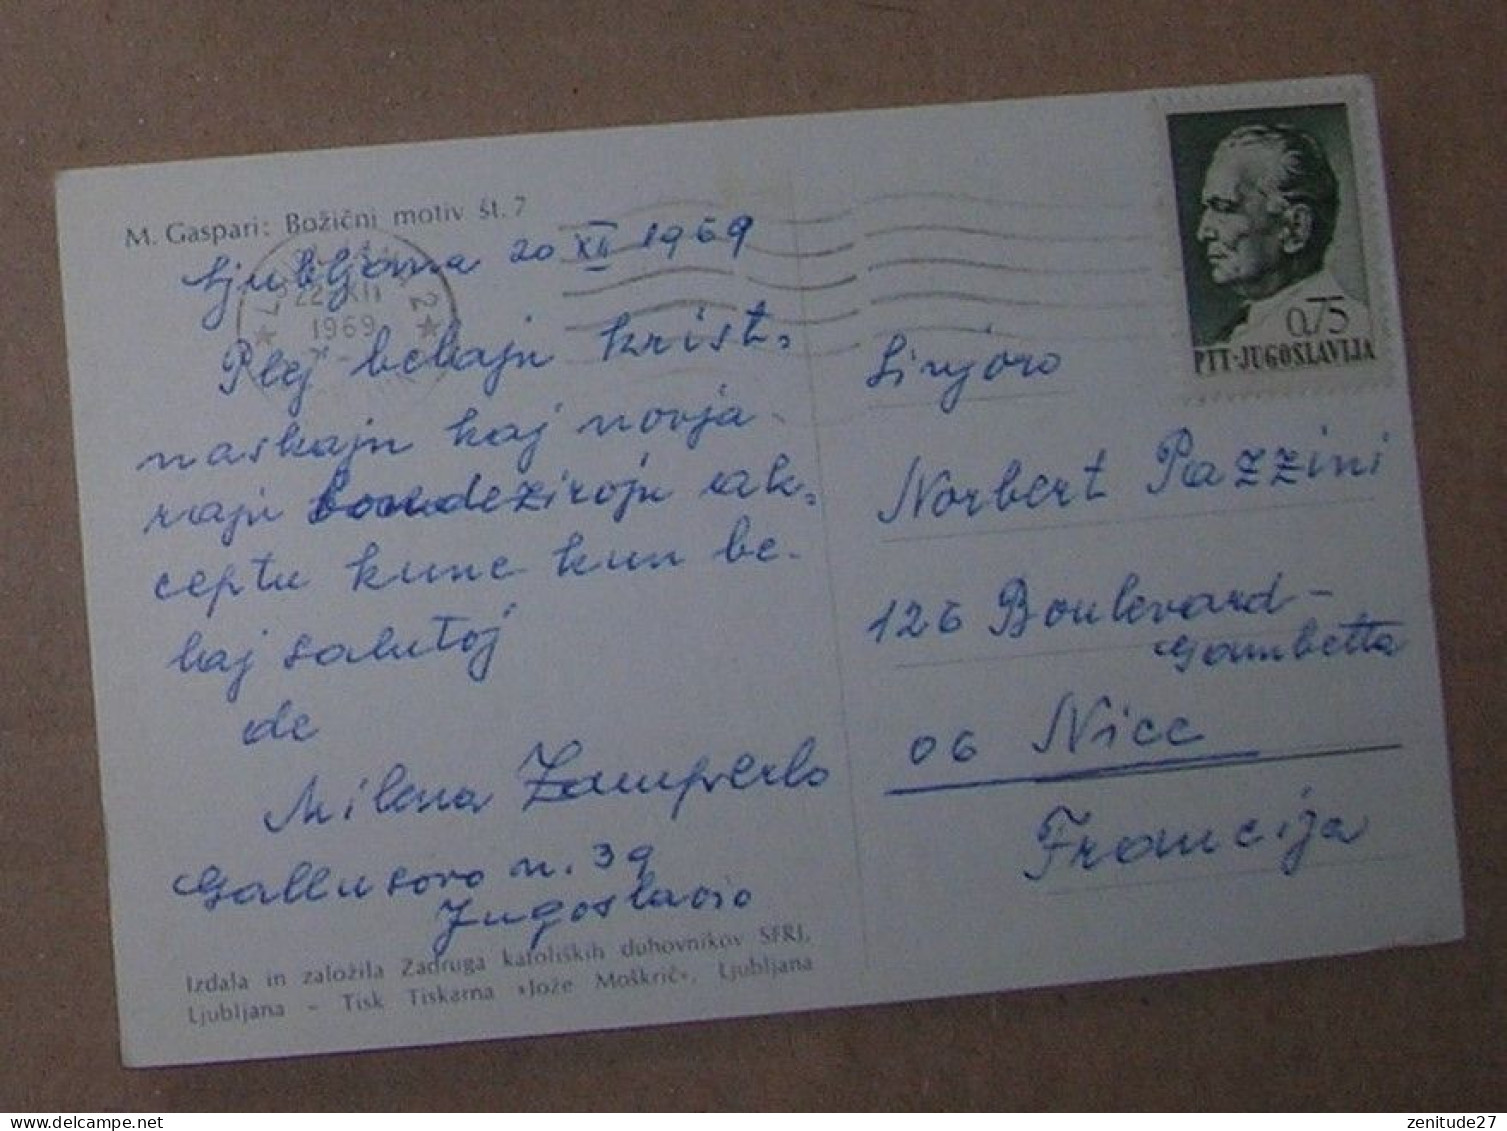 M. Gaspari: Božični motiv št. 7
Ljubljana 20 XII 1969
22. XII
1969
2
Plej belajn krist-
naskajn kaj novja-
rajn bondezirojn ak-
ceptu kune kun be-
laj salutoj
de
Milena Zamperlo
Gallusovo n. 39
Jugoslavio
Izdala in založila Zadruga katoliških duhovnikov SFRJ,
Ljubljana – Tisk Tiskarna »Jože Moškrič«, Ljubljana
0,75
PTT-JUGOSLAVIJA
Sinjoro
Norbert Pazzini
126 Boulevard-
Gambetta
06 Nice
Francija
zenitude27